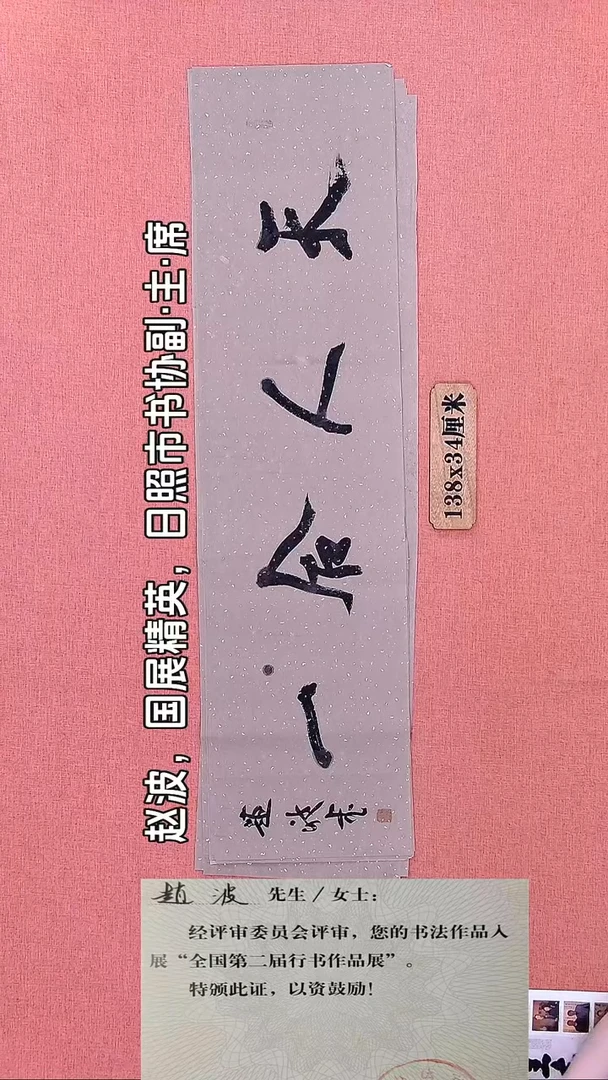 赵波，国展精英，日照市书协副·主·席
天人合一
趙波
138x34厘米
趙波 先生/女士：
经评审委员会评审，您的书法作品入
展“全国第二届行书作品展”。
特颁此证，以资鼓励！